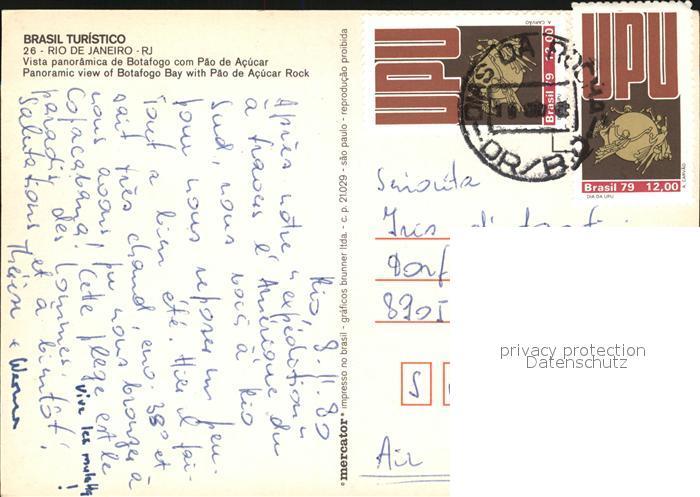 BRASIL TURÍSTICO
26 - RIO DE JANEIRO - RJ
Vista panorâmica de Botafogo com Pão de Açúcar
Panoramic view of Botafogo Bay with Pão de Açúcar Rock
Rio, 9.11.80
Après notre "expédition"
à travers l'Amérique du
Sud, nous voici à Rio
pour nous reposer un peu.
Tout a bien été. Hier il fai-
sait très chaud, env. 38° et
nous avons pu nous bronzer à
Copacabana! Cette plage est le
paradis des hommes.
Vive les
!
Salutations et à bientôt!
Thérèse + Werner
mercator
impresso no brasil - gráficos brunner ltda. - c. p. 21.029 - são paulo - reprodução proibida
UPU
Brasil 79 12,00
A. CARVÃO
UPU
Brasil 79 12,00
DIA DA UPU
A. CARVÃO
Señorita
Iris
Dorf
S
Air
privacy protection
Datenschutz